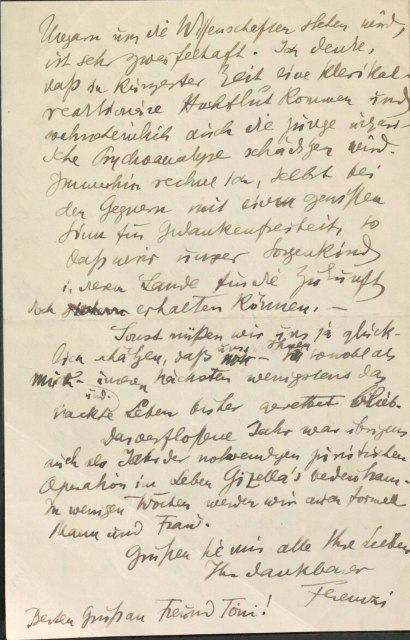 Ungarn um die Wissenschaften stehen wird,
ist sehr zweifelhaft. Ich denke,
daß in kürzester Zeit eine klerikal-
reaktionäre Hochflut kommen und
wahrscheinlich auch die junge ungari-
sche Psychoanalyse schädigen wird.
Immerhin rechne ich, selbst bei
den Gegnern mit einem gewissen
Sinn für Gedankenfreiheit, so
daß wir unser Sorgenkind
in diesem Lande für die Zukunft
doch erhalten können. —
Sonst müßen wir uns ja glück-
lich schätzen, daß uns sowohl als
unseren nächsten wenigstens das
nackte Leben bisher gerettet blieb.
Das verflossene Jahr war übrigens
auch als Jahr der notwendigen
Operation im Leben Gizella's bedeutsam.
In wenigen Wochen werden wir auch formell
Mann und Frau.
Grüßen Sie mir alle Ihre Lieben
Ihr dankbarer
Ferenczi
Besten Gruß an Freund Toni!